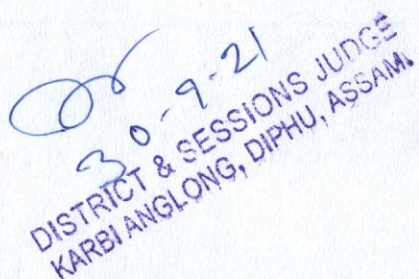 30-9-21
DISTRICT & SESSIONS JUDGE
KARBI ANGLONG, DIPHU, ASSAM.